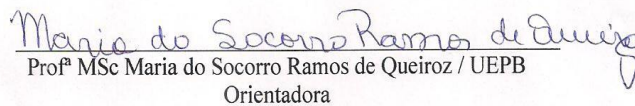 Maria do Socorro Ramos de Queiroz
Profª MSc Maria do Socorro Ramos de Queiroz / UEPB
Orientadora